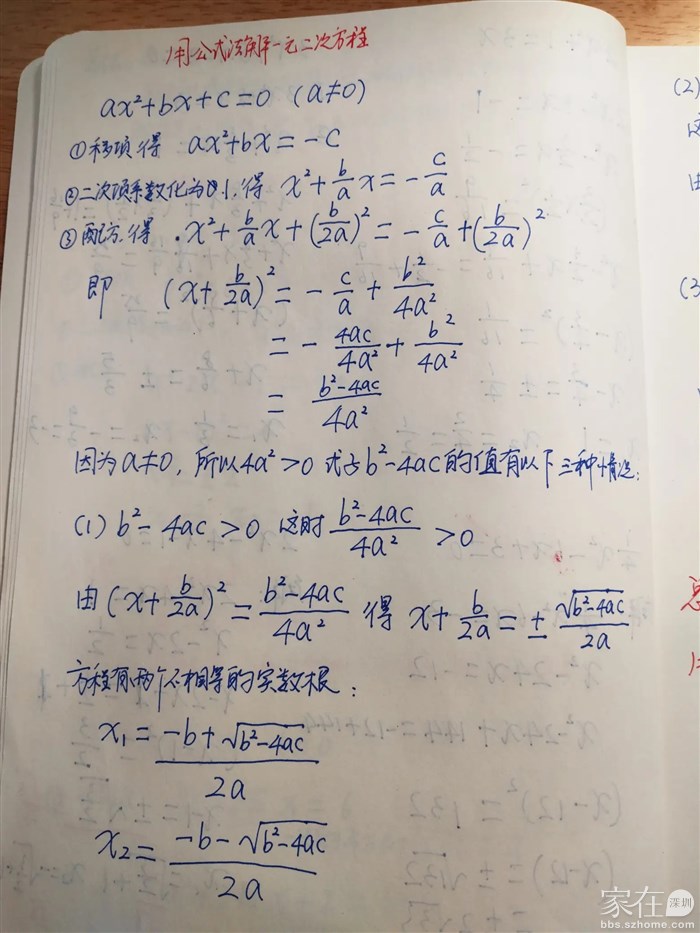 用公式法解一元二次方程
ax²+bx+c=0 (a≠0)
①移项,得 ax²+bx=-c
②二次项系数化为1,得 x²+b/a x=-c/a
③配方,得 x²+b/a x+(b/2a)²=-c/a+(b/2a)²
即 (x+b/2a)²=-c/a+b²/4a²
=-4ac/4a²+b²/4a²
=b²-4ac/4a²
因为a≠0,所以4a²>0 式子b²-4ac的值有以下三种情况:
(1) b²-4ac>0 这时 b²-4ac/4a²>0
由(x+b/2a)²=b²-4ac/4a² 得 x+b/2a=±√b²-4ac/2a
方程有两个不相等的实数根:
x₁=-b+√b²-4ac/2a
x₂=-b-√b²-4ac/2a
(2)
由
(3
家在深圳
bbs.szhome.com